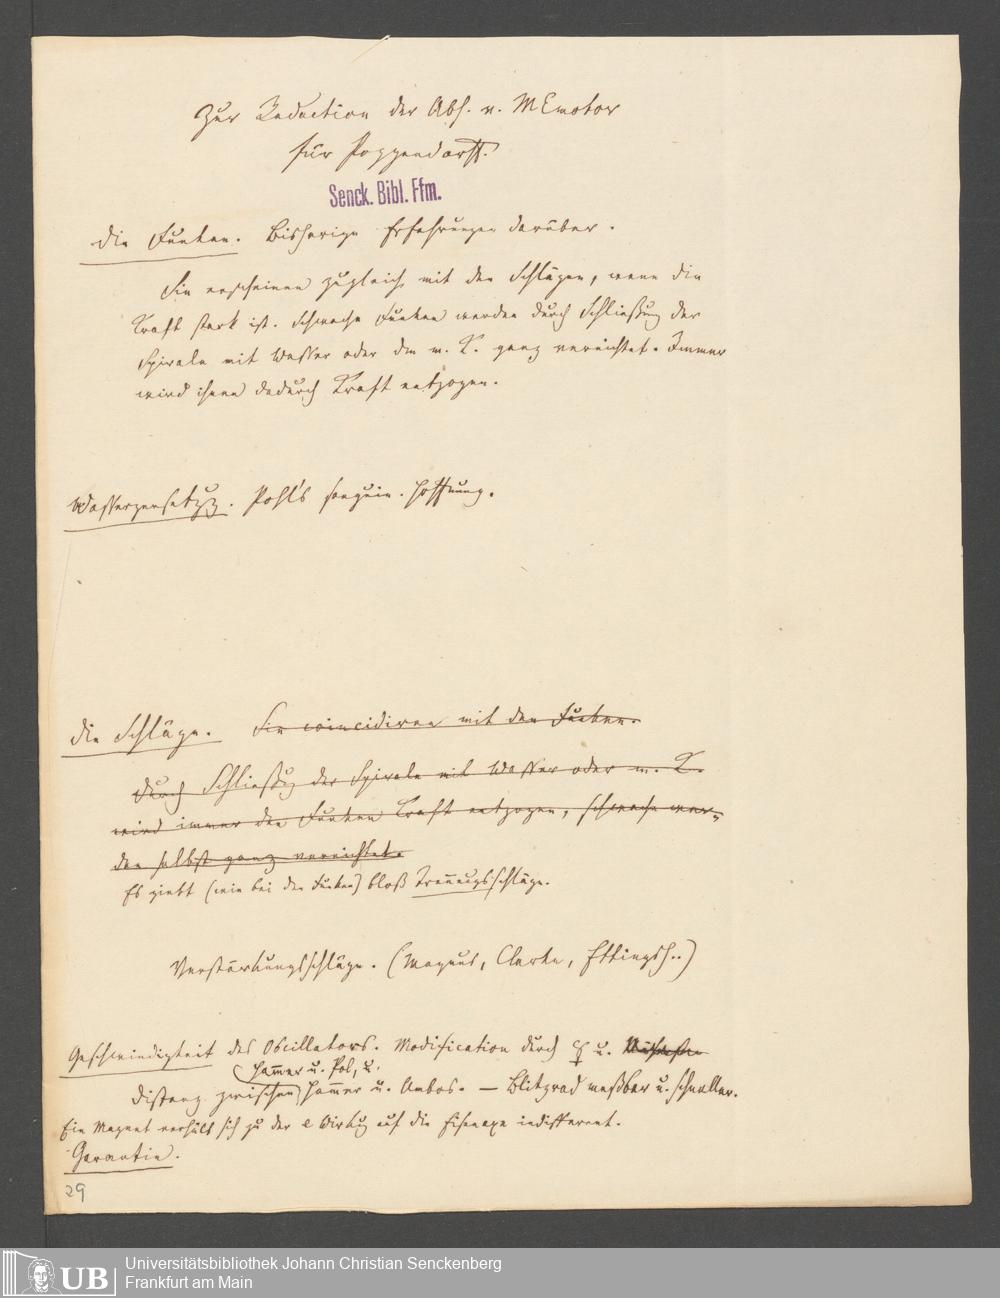 Zur Redaction der Abh. v. MEmotor
für Poggendorff.
Senck. Bibl. Ffm.
Die Funken. Bisherige Erfahrungen darüber.
Sie erscheinen zugleich mit den Schlägen, wenn die
Kraft stark ist. Schwache Funken werden durch Schließung der
Spirale mit Wasser oder dm m. K. ganz vernichtet. Immer
wird ihnen dadurch Kraft entzogen.
Wasserzersetzg. Pohl's sanguin. Hoffnung.
Die Schläge. Sie coincidiren mit den Funken.
Durch Schließug der Spirale mit Wasser oder m. K.
wird immer den Funken Kraft entzogen, schwache wer-
den selbst ganz vernichtet.
Es giebt (wie bei den Funken) bloß Trennungsschläge.
Verstärkungsschläge. (Magnus, Clarke, Ettingsh..)
Geschwindigkeit des Oscillators. Modification durch u.
Hammer u. Pol, u.
Distanz zwischen Hammer u. Ambos. — Blitzrad meßbar u. schneller.
Ein Magnet verhält sich zu der e Wirkug auf die Eisenaxe indifferent.
Garantie.
29
UB
Universitätsbibliothek Johann Christian Senckenberg
Frankfurt am Main